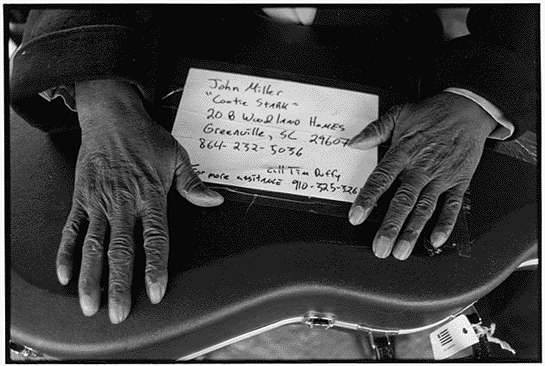 John Miller
"Cootie STARK"
20 B Woodland Homes
Greenville, SC 29607
864-232-5036
Call Tim Duffy
For more assitance 910-325-326